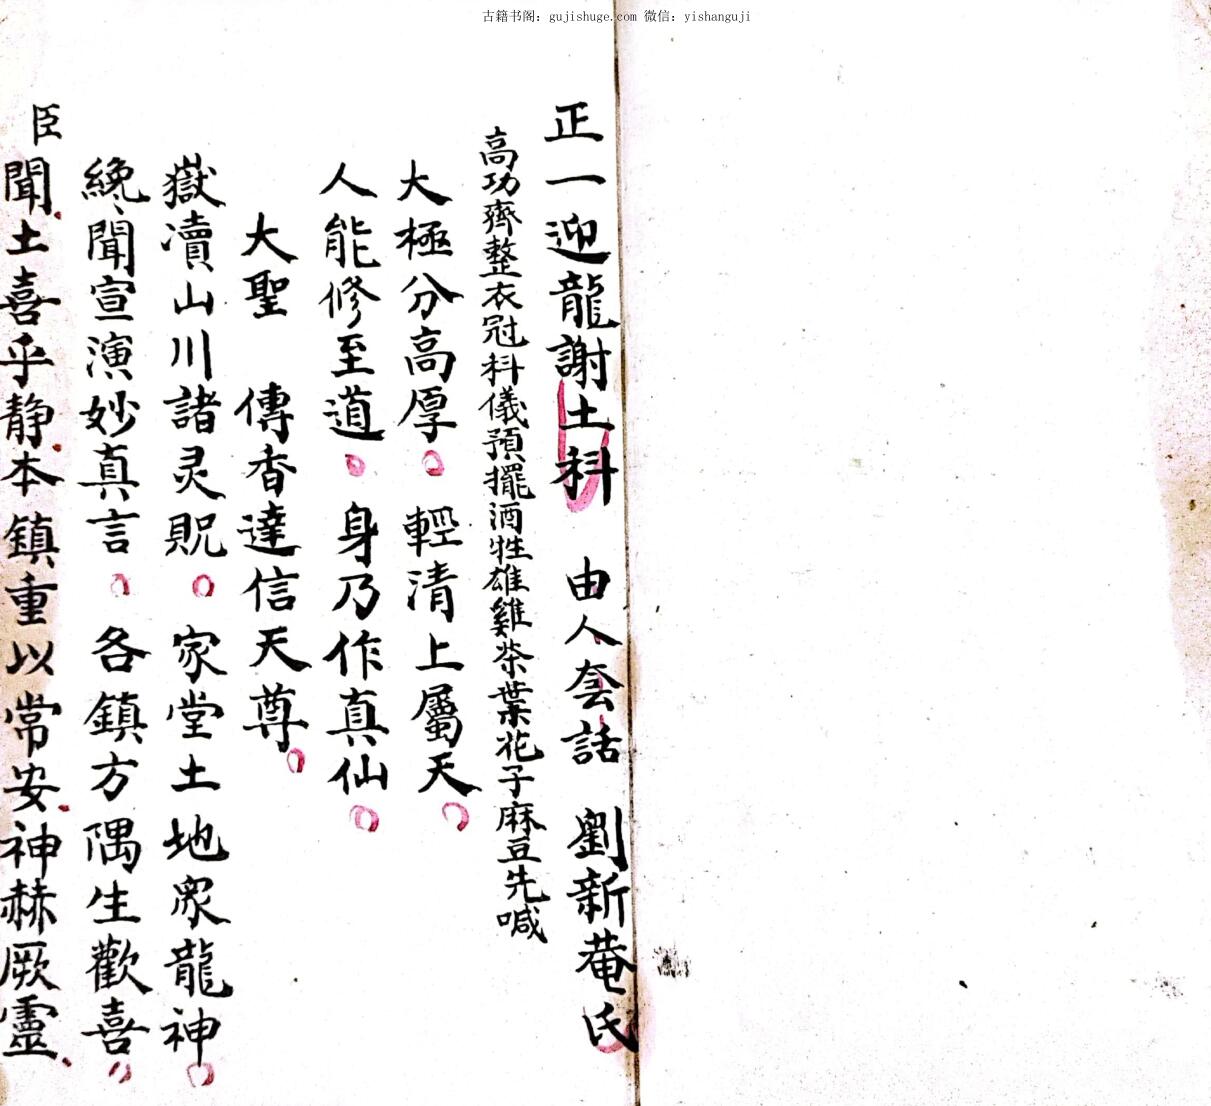 古籍书阁：gujishuge.com 微信：yishanguji
正一迎龍謝土科 由人套話 劉新菴氏
高功齊整衣冠科儀預擺酒牲雄雞茶葉花子麻豆先喊
大極分高厚 輕清上屬天
人能修至道 身乃作真仙
大聖 傳香達信天尊
嶽瀆山川諸灵貺 家堂土地眾龍神
纔聞宣演妙真言 各鎮方隅生歡喜
臣聞土喜乎静本鎮重以常安神赫厥靈